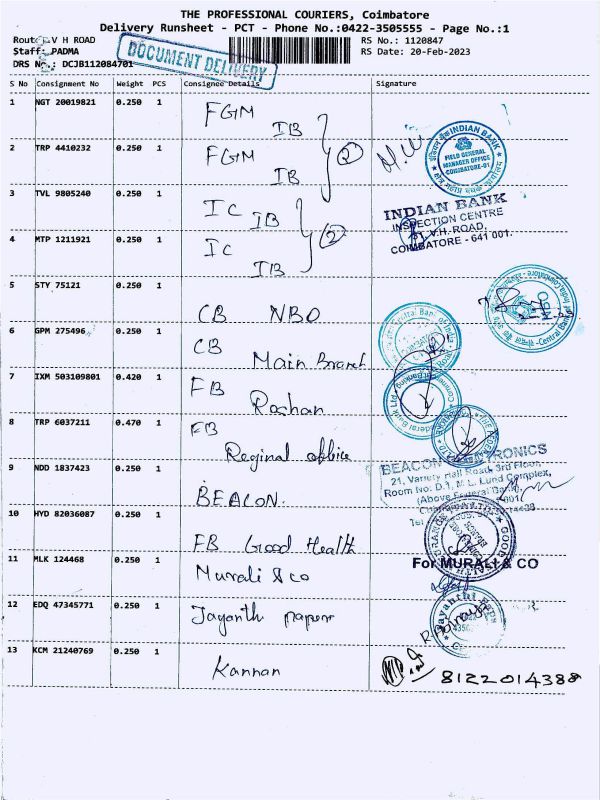 THE PROFESSIONAL COURIERS, Coimbatore
Delivery Runsheet - PCT - Phone No.:0422-3505555 - Page No.:1
Route: V H ROAD
RS No.: 1120847
Staff: PADMA
RS Date: 20-Feb-2023
DRS No.: DCJB112084701
DOCUMENT DELIVERY
S No Consignment No Weight PCS Consignee Details Signature
1 NGT 20019821 0.250 1 FGM IB
2 TRP 4410232 0.250 1 FGM IB
2
INDIAN BANK
FIELD GENERAL
MANAGER OFFICE
COIMBATORE-01
3 TVL 9805240 0.250 1 IC IB
4 MTP 1211921 0.250 1 IC IB
2
INDIAN BANK
INSPECTION CENTRE
V.H. ROAD,
COIMBATORE - 641 001.
5 STY 75121 0.250 1 CB NBO
Central Bank of India, Coimbatore
6 GPM 275496 0.250 1 CB Main Branch
Central Bank of India
7 IXM 503109801 0.420 1 FB Roshan
Federal Bank Ltd
8 TRP 6037211 0.470 1 FB Reginal office
9 NDD 1837423 0.250 1 BEACON.
BEACON ELECTRONICS
21, Variety Hall Road, 3rd Floor,
Room No: D.1, M.L. Lund Complex,
(Above Federal Bank),
10 HYD 82036087 0.250 1 FB Good Health
11 MLK 124468 0.250 1 Murali & co
For MURALI & CO
12 EDQ 47345771 0.250 1 Jayanth paper
13 KCM 21240769 0.250 1 Kannan
8122014388